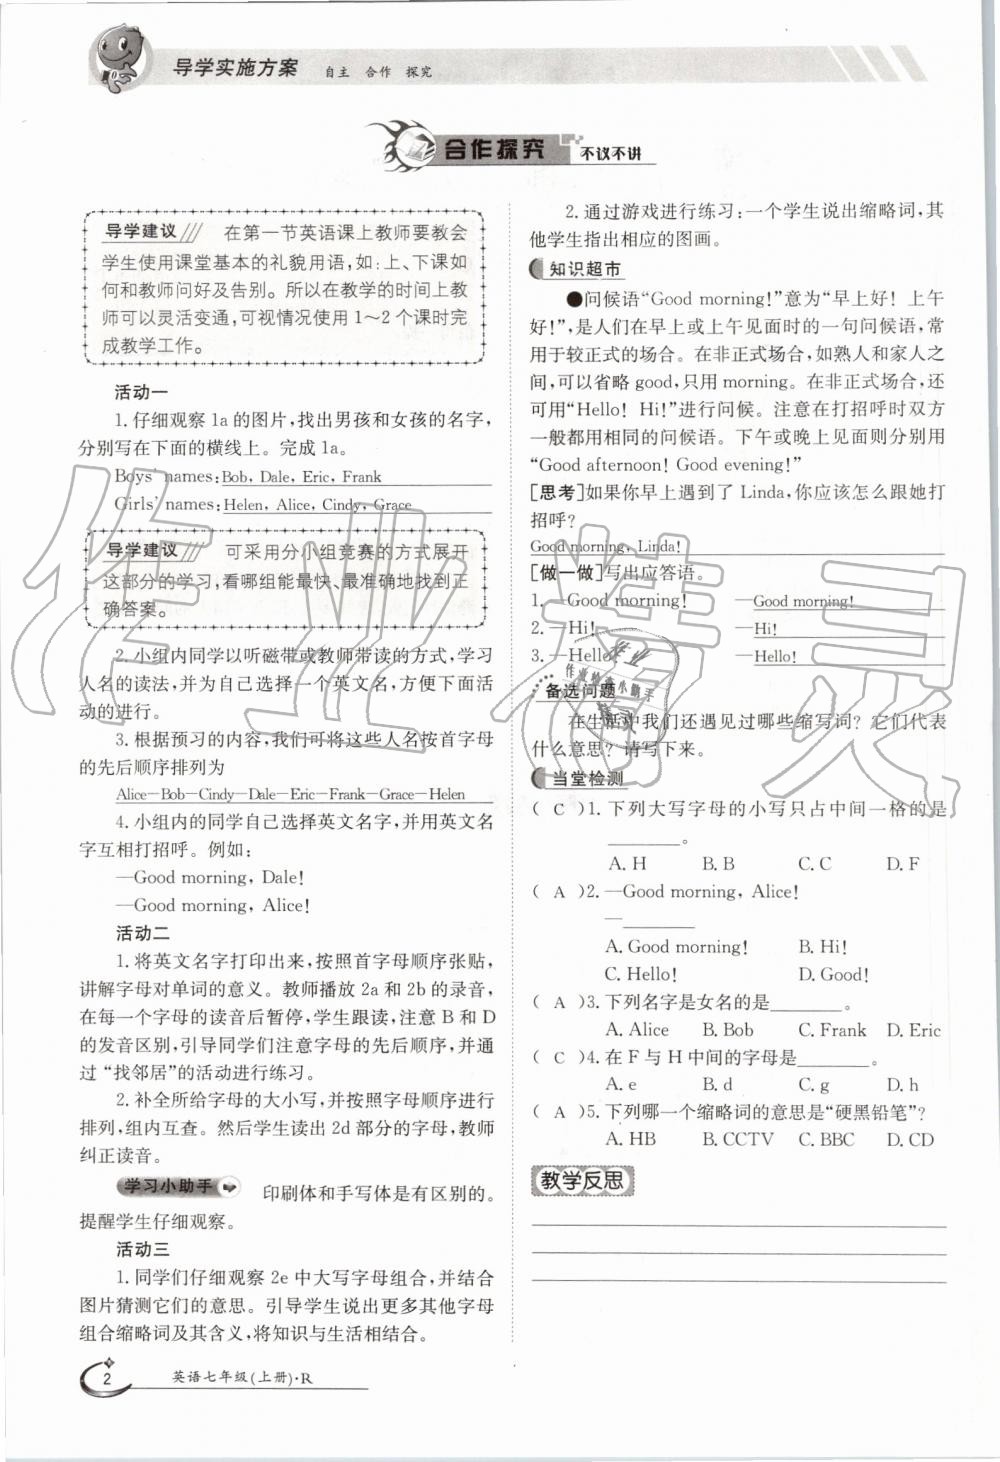 导学实施方案 自主 合作 探究
合作探究 不议不讲
导学建议 在第一节英语课上教师要教会
学生使用课堂基本的礼貌用语,如:上、下课如
何和教师问好及告别。所以在教学的时间上教
师可以灵活变通,可视情况使用1~2个课时完
成教学工作。
活动一
1.仔细观察1a的图片,找出男孩和女孩的名字,
分别写在下面的横线上。完成1a。
Boys' names:Bob, Dale, Eric, Frank
Girls' names:Helen, Alice, Cindy, Grace
导学建议 可采用分小组竞赛的方式展开
这部分的学习,看哪组能最快、最准确地找到正
确答案。
2.小组内同学以听磁带或教师带读的方式,学习
人名的读法,并为自己选择一个英文名,方便下面活
动的进行。
3.根据预习的内容,我们可将这些人名按首字母
的先后顺序排列为
Alice—Bob—Cindy—Dale—Eric—Frank—Grace—Helen
4.小组内的同学自己选择英文名字,并用英文名
字互相打招呼。例如:
—Good morning, Dale!
—Good morning, Alice!
活动二
1.将英文名字打印出来,按照首字母顺序张贴,
讲解字母对单词的意义。教师播放2a和2b的录音,
在每一个字母的读音后暂停,学生跟读,注意B和D
的发音区别,引导同学们注意字母的先后顺序,并通
过“找邻居”的活动进行练习。
2.补全所给字母的大小写,并按照字母顺序进行
排列,组内互查。然后学生读出2d部分的字母,教师
纠正读音。
学习小助手 印刷体和手写体是有区别的。
提醒学生仔细观察。
活动三
1.同学们仔细观察2e中大写字母组合,并结合
图片猜测它们的意思。引导学生说出更多其他字母
组合缩略词及其含义,将知识与生活相结合。
2.通过游戏进行练习:一个学生说出缩略词,其
他学生指出相应的图画。
知识超市
●问候语“Good morning!”意为“早上好!上午
好!”,是人们在早上或上午见面时的一句问候语,常
用于较正式的场合。在非正式场合,如熟人和家人之
间,可以省略good,只用morning。在非正式场合,还
可用“Hello! Hi!”进行问候。注意在打招呼时双方
一般都用相同的问候语。下午或晚上见面则分别用
“Good afternoon! Good evening!”
[思考]如果你早上遇到了Linda,你应该怎么跟她打
招呼?
Good morning, Linda!
[做一做]写出应答语。
1.—Good morning! —Good morning!
2.—Hi! —Hi!
3.—Hello! —Hello!
备选问题
在生活中我们还遇见过哪些缩写词?它们代表
什么意思?请写下来。
当堂检测
( C )1.下列大写字母的小写只占中间一格的是
________。
A. H B. B C. C D. F
( A )2.—Good morning, Alice!
—________
A. Good morning! B. Hi!
C. Hello! D. Good!
( A )3.下列名字是女名的是________。
A. Alice B. Bob C. Frank D. Eric
( C )4.在F与H中间的字母是________。
A. e B. d C. g D. h
( A )5.下列哪一个缩略词的意思是“硬黑铅笔”?
A. HB B. CCTV C. BBC D. CD
教学反思
2 英语七年级(上册)·R
作业精灵
作业
作业检查小助手
精灵